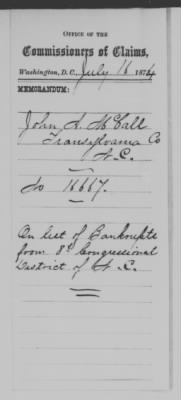 OFFICE OF THE
Commissioners of Claims,
Washington, D. C., July 16 1874
MEMORANDUM:
John A. McCall
Transylvania Co
N.C.
No 16667.
On list of Bankrupts
from 8th Congressional
District of N.C.